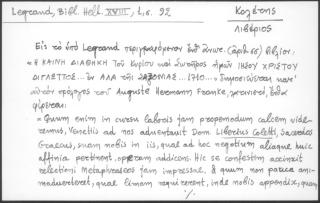 Legrand, Bibl. Hell. XVIII, t.s. 92
Κολέτης
Λιβέριος
Εἰς τὸ ὑπὸ Legrand περιγραφόμενον
« Η ΚΑΙΝΗ ΔΙΑΘΗΚΗ ΤΟΥ Κυρίου καὶ Σωτῆρος ἡμῶν ΙΗΣΟΥ ΧΡΙΣΤΟΥ
ΔΙΓΛΩΤΤΟΣ ... ἐν ΑΛΑ ΤΗΣ ΣΑΞΟΝΙΑΣ ... 1710... »
πρόλογος τοῦ Auguste Hermann Franke,
φέρεται:
« Quum enim in cursu laboris jam propemodum calcem vide-
remus, Venetiis ad nos adventavit Dom. Libertus Coletti, Sacerdos
Graecus, quam nobis in iis, quae ad hoc negotium aliaque huic
affinia pertinent, operam addicens. Hic se confestim accinxit
relectioni Metaphraseos jam impressae. & quum non pauca ani-
madverteret, quae limam requirerent, inde nobis appendix, quam
·/.